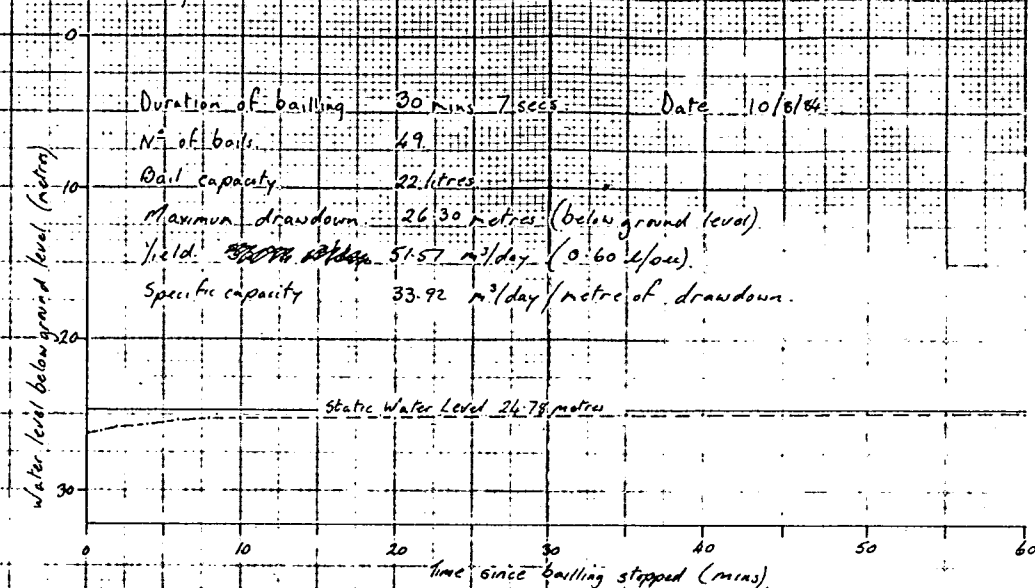 0
Duration of bailling 30 mins 7 secs Date 10/8/84
Nº of bails 49.
10
Bail capacity 22 litres
Maximum drawdown 26.30 metres (below ground level)
Yield 51.57 m³/day (0.60 l/sec)
Specific capacity 33.92 m³/day/metre of drawdown.
20
Static Water Level 24.78 metres
30
Water level below ground level (metres)
0 10 20 30 40 50 60
Time since bailling stopped (mins)